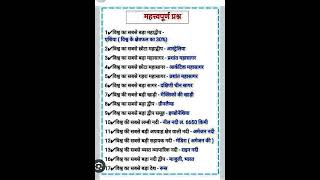 महत्त्वपूर्ण प्रश्न
1✔विश्व का सबसे बड़ा महाद्वीप -
एशिया ( विश्व के क्षेत्रफल का 30%)
2✔विश्व का सबसे छोटा महाद्वीप - आस्ट्रेलिया
3✔विश्व का सबसे बड़ा महासागर - प्रशांत महासागर
4✔विश्व का सबसे छोटा महासागर - आर्कटिक महासागर
5✔विश्व का सबसे गहरा महासागर - प्रशांत महासागर
6✔विश्व का सबसे बड़ा सागर - दक्षिणी चीन सागर
7✔विश्व की सबसे बड़ी खाड़ी - मेक्सिको की खाड़ी
8✔विश्व का सबसे बड़ा द्वीप - ग्रीनलैण्ड
9✔विश्व का सबसे बड़ा द्वीप समूह - इण्डोनेशिया
10✔विश्व की सबसे लम्बी नदी - नील नदी ल. 6650 किमी
11✔विश्व की सबसे बड़ी अपवाह क्षेत्र वाली नदी - अमेजन नदी
12✔विश्व की सबसे बड़ी सहायक नदी - मेडिरा (अमेजन की )
13✔विश्व की सबसे व्यस्त व्यापारिक नदी - राइन नदी
16✔विश्व का सबसे बड़ा नदी द्वीप - माजुली, भारत
17✔विश्व का सबसे बड़ा देश - रूस